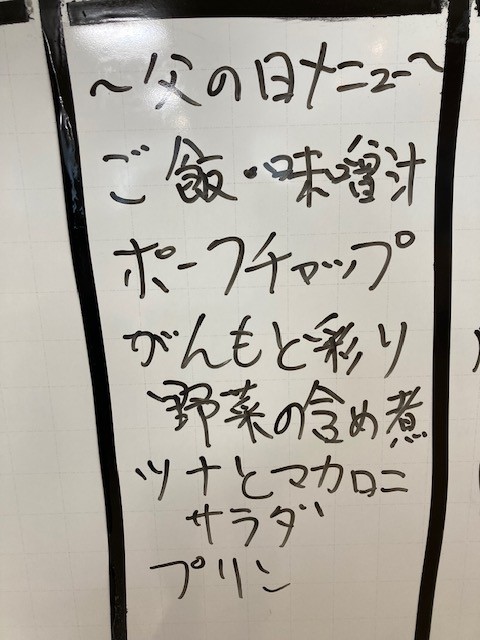 ～父の日メニュー～
ご飯・味噌汁
ポークチャップ
がんもと彩り
野菜の含め煮
ツナとマカロニ
サラダ
プリン